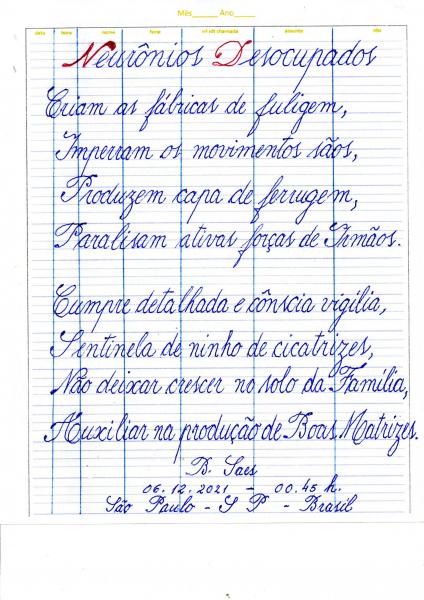 Mês Ano
data hora nome fone nº id chamada assunto obs
Neurônios Desocupados
Criam as fábricas de fuligem,
Imperram os movimentos sãos,
Produzem capa de ferrugem,
Paralisam ativas forças de Irmãos.
Cumpre detalhada e cônscia vigília,
Sentinela de ninho de cicatrizes,
Não deixar crescer no solo da Família,
Auxiliar na produção de Boas Matrizes.
B. Saes
06.12.2021 - 00.45 h.
São Paulo - S P - Brasil